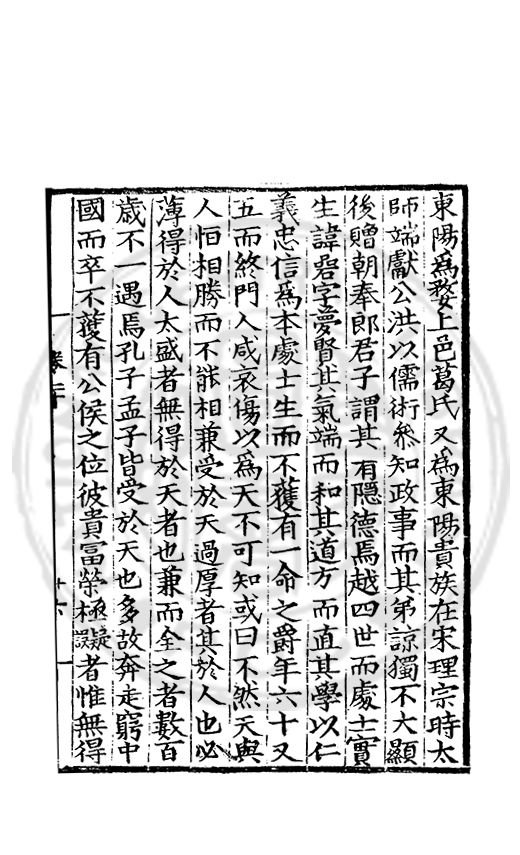 東陽為婺上邑葛氏又為東陽貴族在宋理宗時太
師端獻公洪以儒術叅知政事而其弟諒獨不大顯
後贈朝奉郎君子謂其有隱德焉越四世而處士實
生諱礐字夢賢其氣端而和其道方而直其學以仁
義忠信為本處士生而不獲有一命之爵年六十又
五而終門人咸哀傷以為天不可知或曰不然天與
人恒相勝而不能相兼受於天過厚者其於人也必
薄得於人太盛者無得於天者也兼而全之者數百
歲不一遇焉孔子孟子皆受於天也多故奔走窮中
國而卒不獲有公侯之位彼貴富榮極者惟無得
卷二十
十六